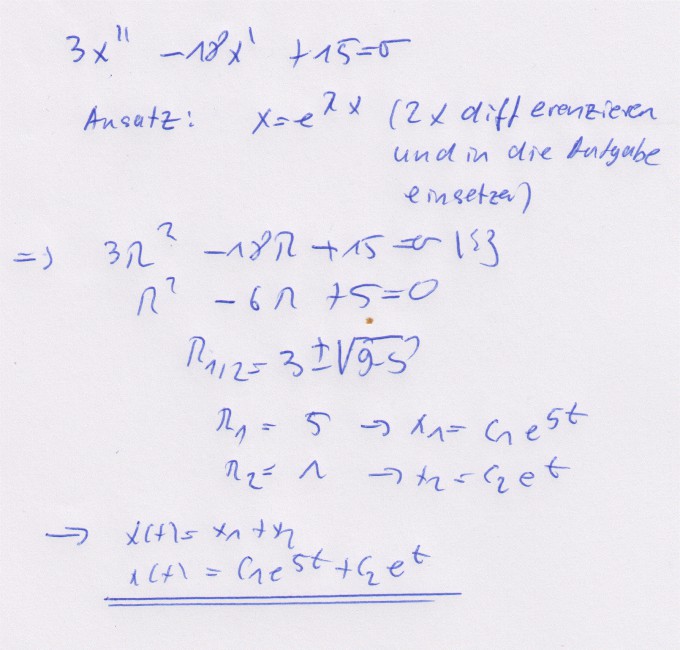 3x'' -18x' +15=0
Ansatz: x=e^λx (2x differenzieren
und in die Aufgabe
einsetzen)
=> 3λ² -18λ +15=0 |:3
λ² -6λ +5=0
λ1/2= 3±√9-5
λ1 = 5 → x1= C1 e^5t
λ2= 1 → x2=C2 e^t
→ x(t)= x1+x2
x(t) = C1e^5t+C2 e^t